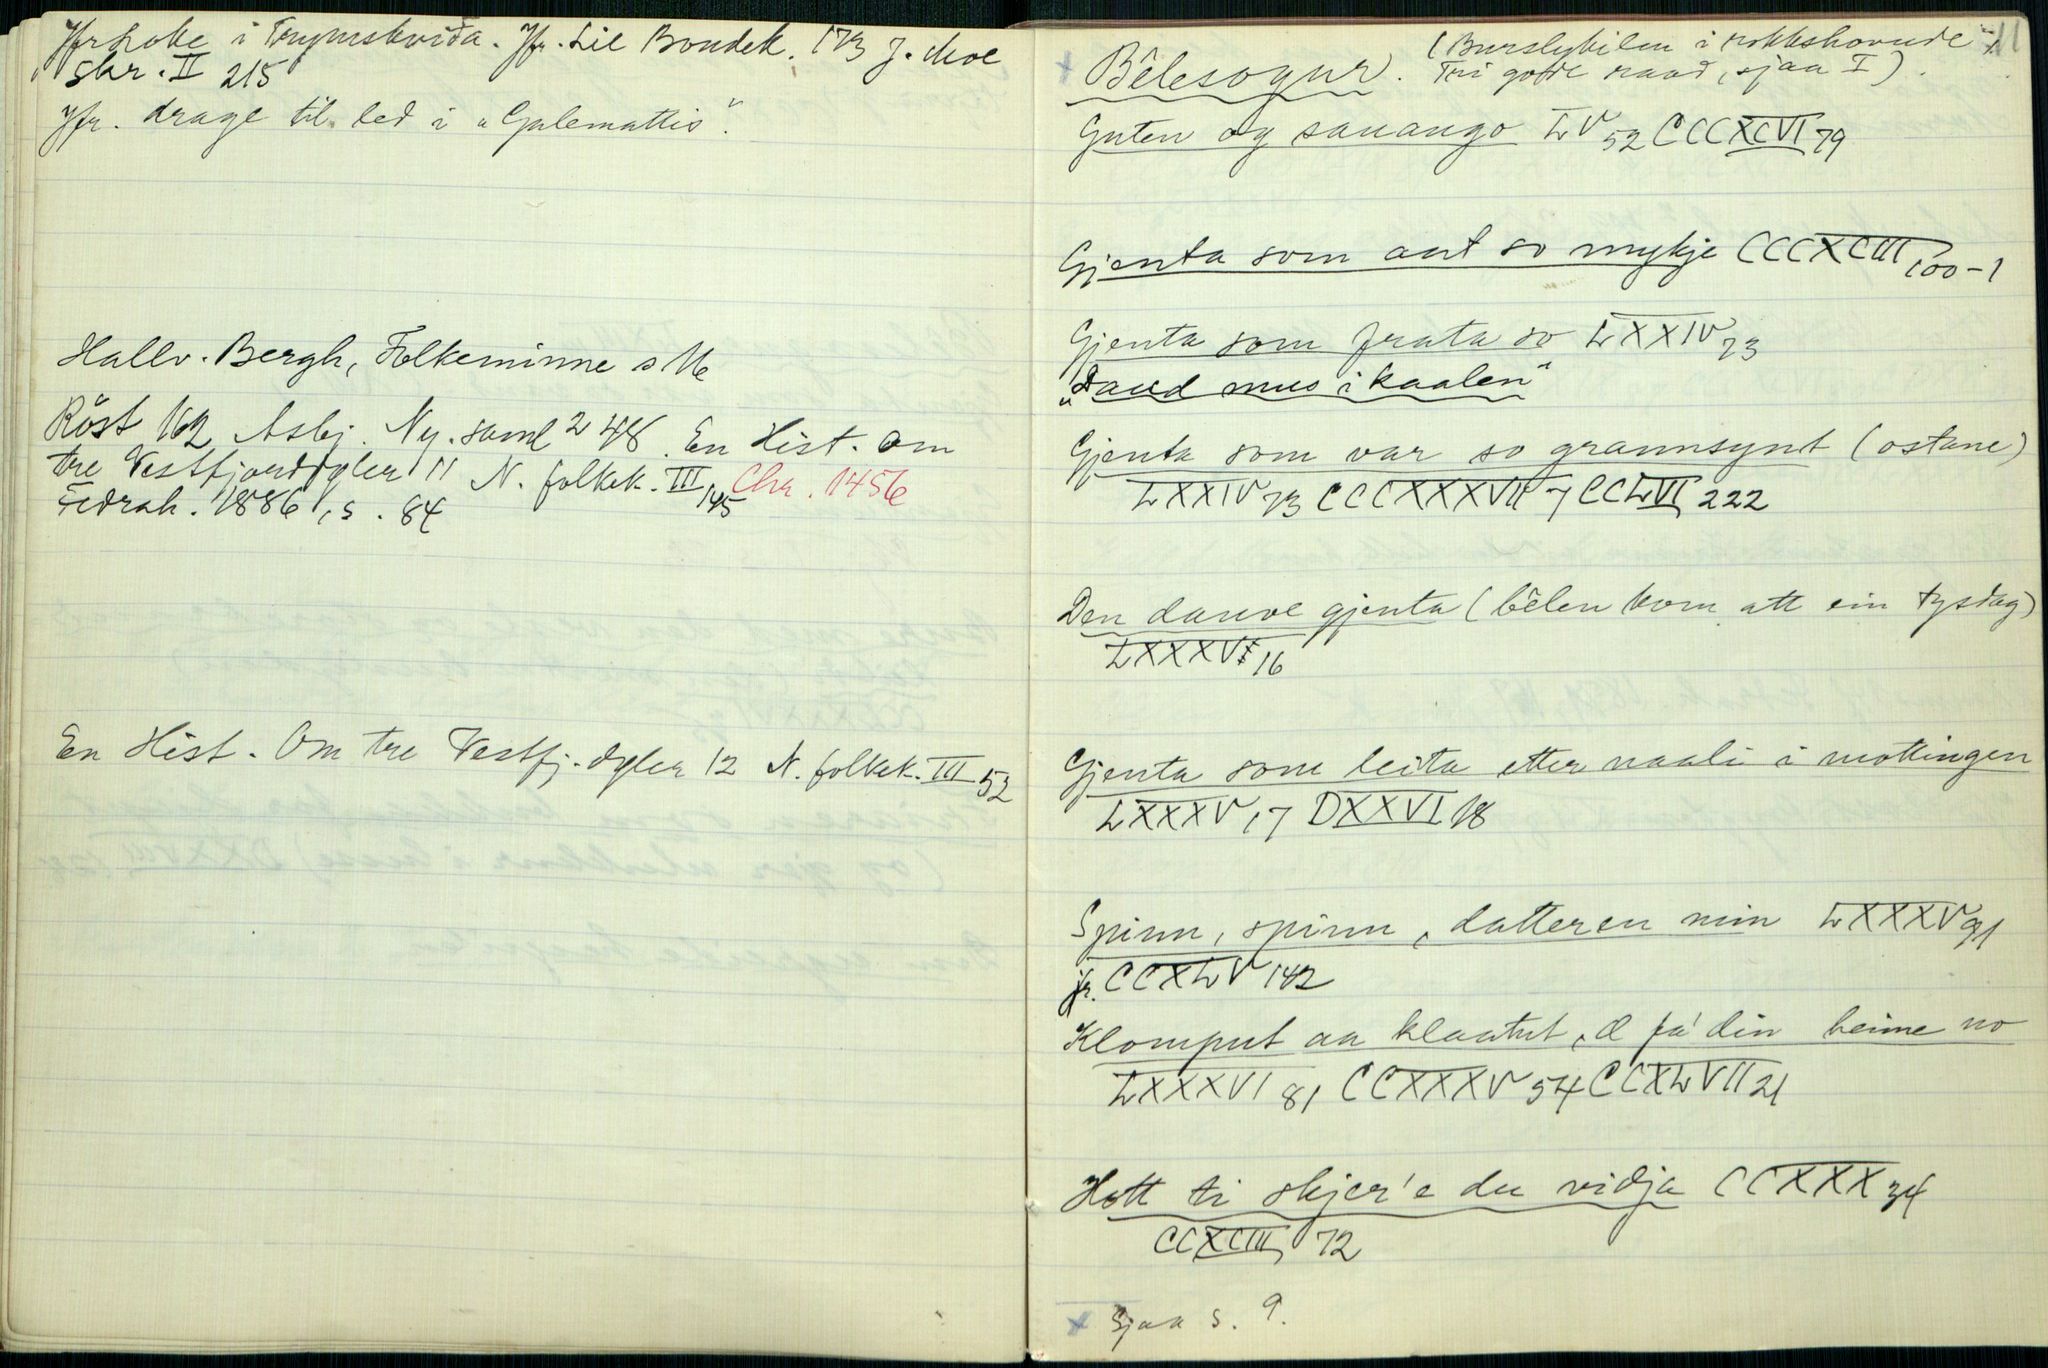 Jfr Loke i Trymskviða. Jfr. Lil Bondek. 173 J. Moe
Skr. II 215
Jfr. drage til led i „Galemattis".
Hallv. Bergh, Folkeminne s 16
Röst 162 Asbj. Ny. saml 2 48. En Hist. om
tre Vestfjorddyler 11 N. folkek. III 145 Chr. 1456
Fedrah. 1886, s. 84
En Hist. Om tre Vestfj. dyler 12 N. folkek. III 52
11
Bêlesogur. (Burslykilen i rokkshovude,
Tri gode raad, sjaa I).
Guten og sauango LV 52 CCCXCVI 79
Gjenta som aat so mykje CCCXCIII 100-1
Gjenta som frata so LXXIV 73
„Daud mus i kaalen"
Gjenta som var so grannsynt (ostane)
LXXIV 73 CCCXXXVII 7 CCLVI 222
Den dauve gjenta (bêlen kom att ein tysdag)
LXXXV 16
Gjenta som leita etter naali i mottingen
LXXXV 17 DXXVI 18
Spinn, spinn, datteren min LXXXV 91
jfr. CCXLV 142
Klomput aa klaatut, d fa' din heime no
LXXXVI 81 CCXXXV 54 CCXLVII 21
Hott ti skjer'e du vidja CCXXX 34
CCXCIII 72
x Sjaa s. 9.